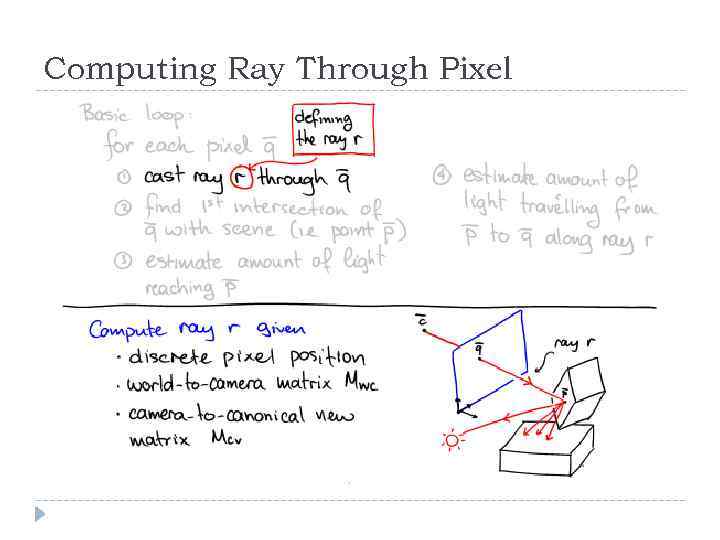 Computing Ray Through Pixel
Basic loop:
for each pixel q̄
defining
the ray r
① cast ray r through q̄
② find 1st intersection of
q̄ with scene (i.e point p̄)
③ estimate amount of light
reaching p̄
④ estimate amount of
light travelling from
p̄ to q̄ along ray r
Compute ray r given
· discrete pixel position
· world-to-camera matrix Mwc
· camera-to-canonical new
matrix Mcv
c̄
q̄
ray r
p̄